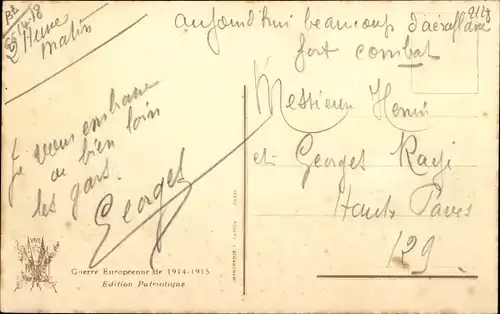 5-14-18
9 Heure
matin
aujourd'hui beaucoup d'aéroplane
fort combat
Je vous embrasse
de bien loin
les gars.
Georges
Messieur Henri
et Georges
Hauts Pavés
129
Guerre Européenne de 1914-1915
Edition Patriotique